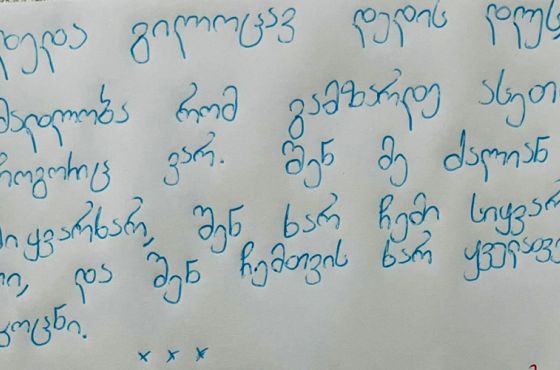 დედა გილოცავ დედის დღეს
მადლობა რომ გამზარდე ასეთი
როგორიც ვარ. შენ მე ძალიან
მიყვარხარ, შენ ხარ ჩემი სიყვარ
ი, და შენ ჩემთვის ხარ ყველაფე
კოცნი.
x x x